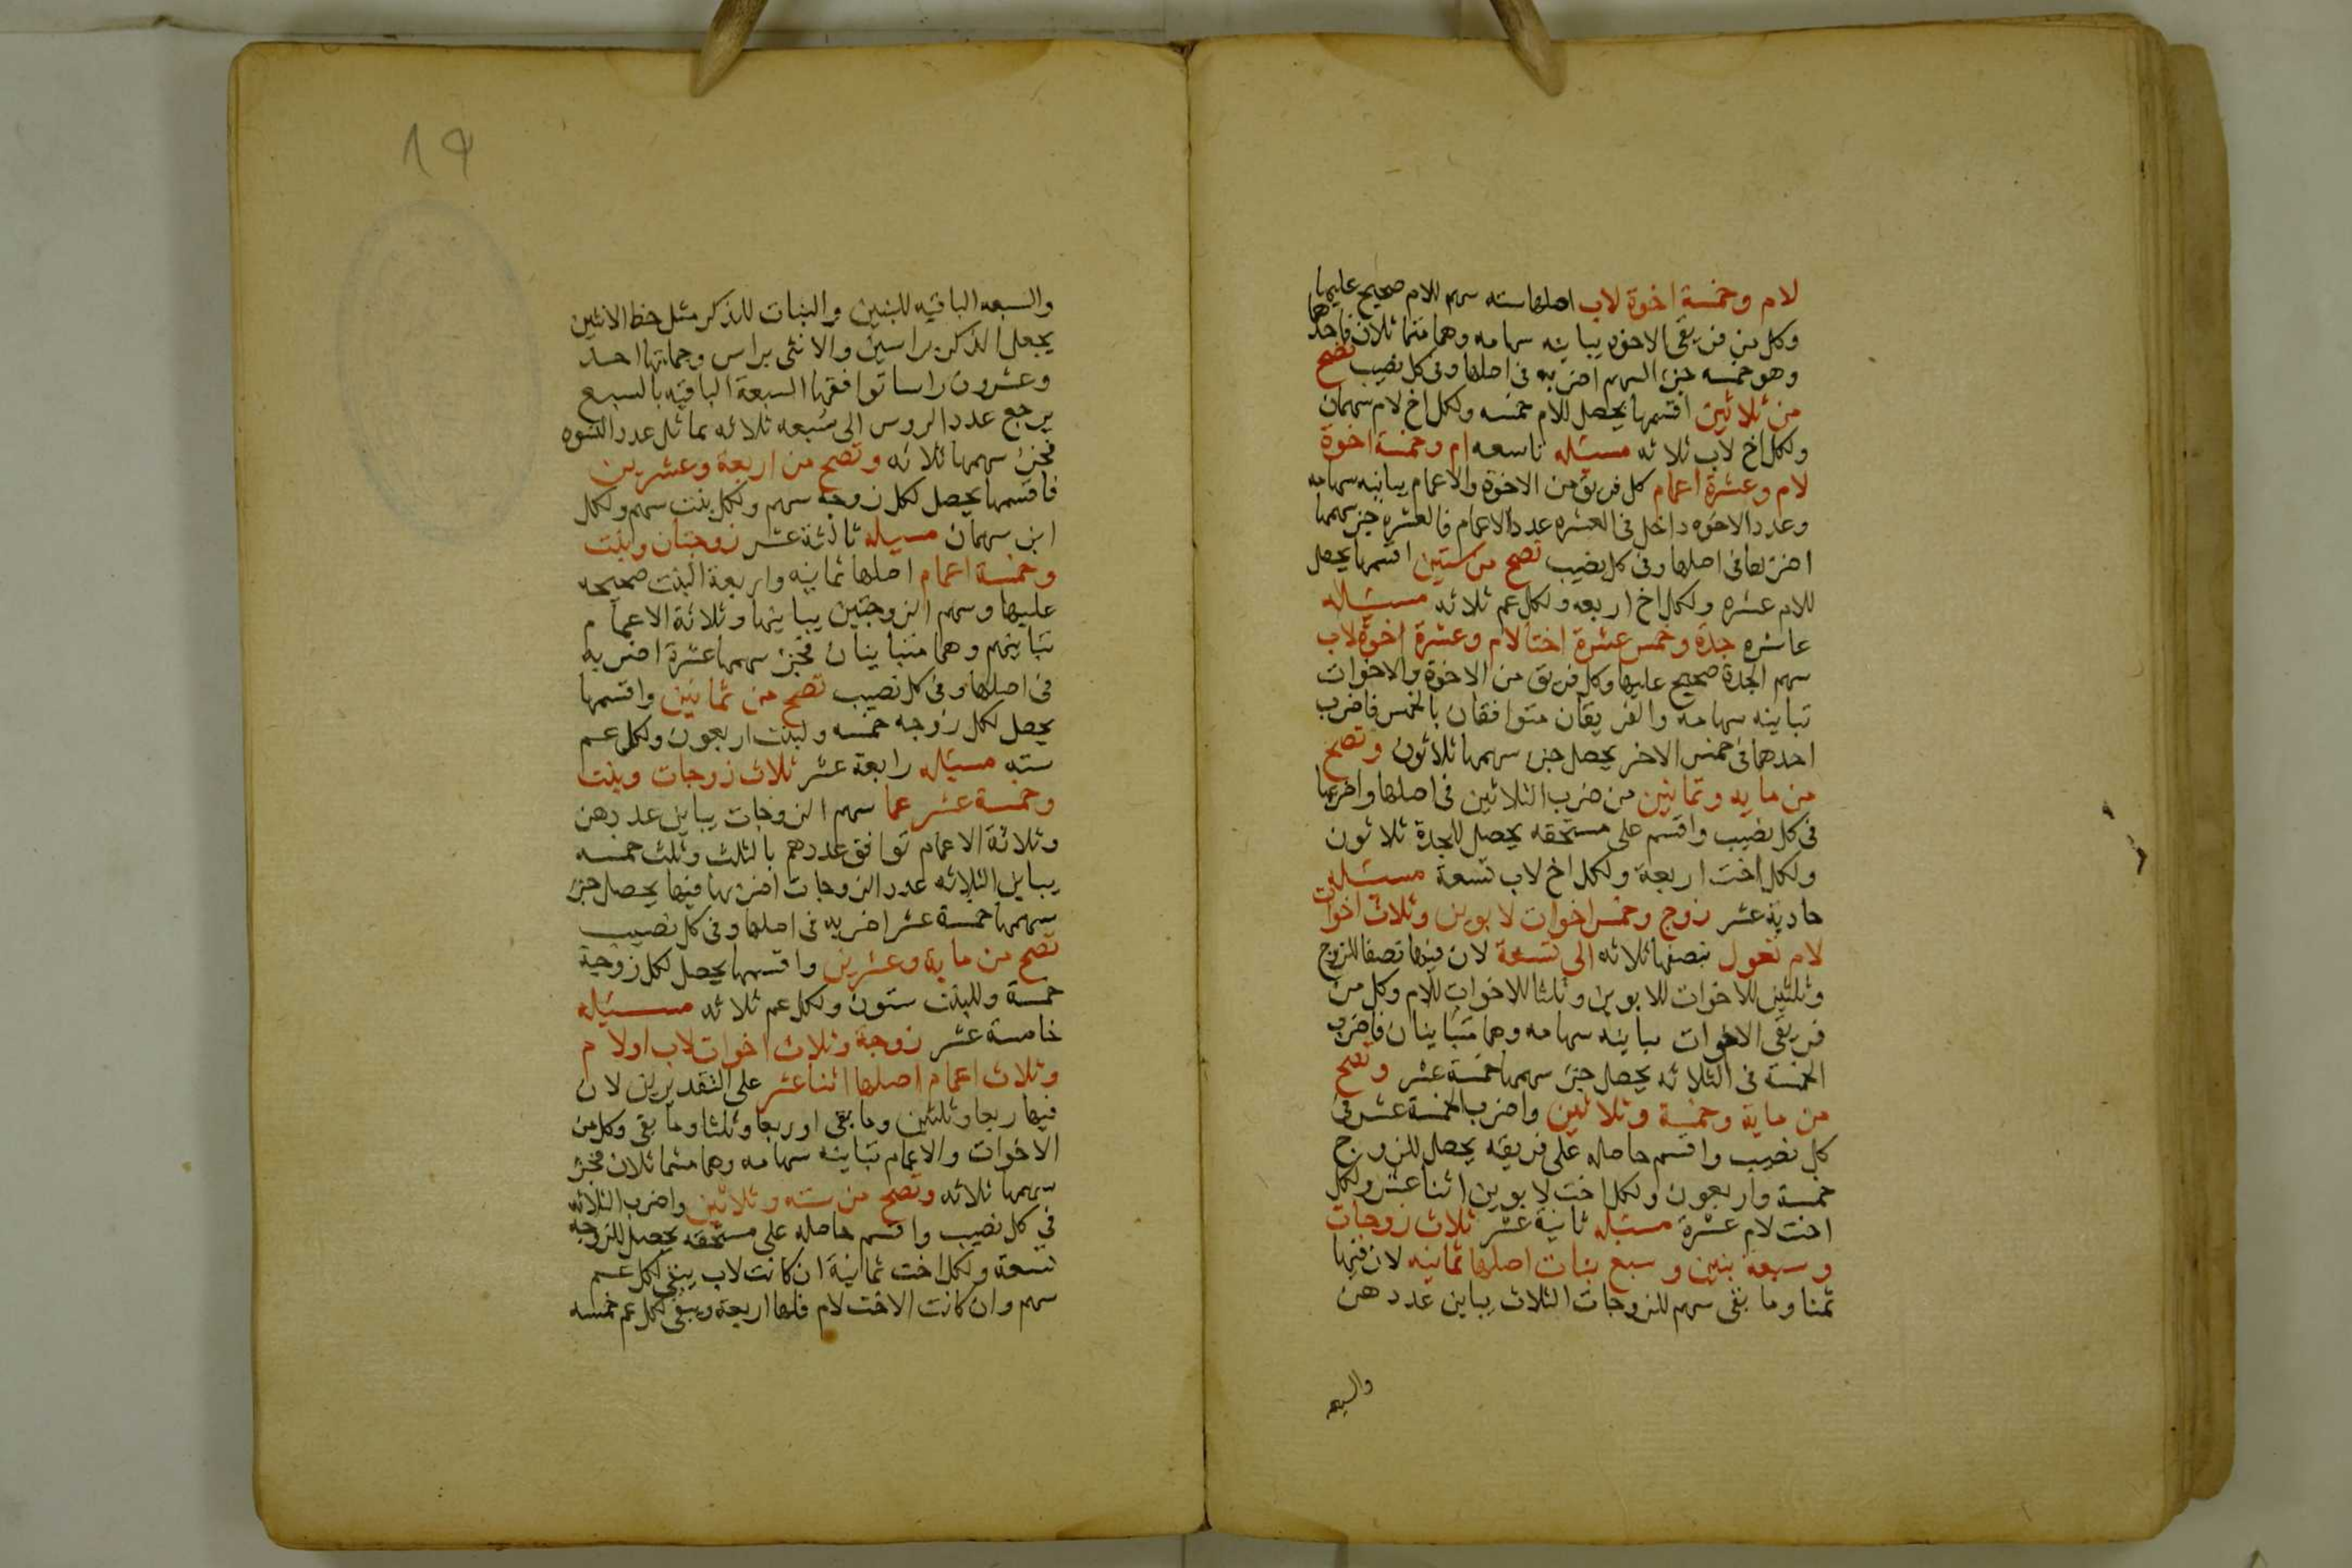 لام وخمسة اخوة لاب اصلها سته سهم للام صحيح عليها
وكل من فريقى الاخوه يباينه سهامه وهما متماثلان فاحدهما
وهو خمسه جزء السهم اضربه فى اصلها وفى كل نصيب تصح
من ثلاثين اقسمها يحصل للام خمسه ولكل اخ لام سهمان
ولكل اخ لاب ثلاثه مسئله تاسعه ام وخمسة اخوة
لام وعشرة اعمام كل فريق من الاخوة والاعمام يباينه سهامه
وعدد الاخوه داخل فى العشره عدد الاعمام فالعشره جزء سهمها
اضربها فى اصلها وفى كل نصيب تصح من ستين اقسمها يحصل
للام عشره ولكل اخ اربعه ولكل عم ثلاثه مسئله
عاشره جدة وخمس عشرة اختا لام وعشرة اخوة لاب
سهم الجدة صحيح عليها وكل فريق من الاخوة والاخوات
تباينه سهامه والفريقان متوافقان بالخمس فاضرب
احدهما فى خمس الاخر يحصل جزء سهمها ثلاثون وتصح
من مايه وثمانين من ضرب الثلاثين فى اصلها واضربها
فى كل نصيب واقسم على مستحقه يحصل للجدة ثلاثون
ولكل اخت اربعة ولكل اخ لاب تسعة مسئله
حادية عشر زوج وخمس اخوات لابوين وثلاث اخوات
لام تعول بنصفها ثلاثه الى تسعة لان فيها نصفا للزوج
وثلثين للاخوات للابوين وثلثا للاخوات للام وكل من
فريقى الاخوات يباينه سهامه وهما متباينان فاضرب
الخمسة فى الثلاثه يحصل جزء سهمها خمسة عشر وتصح
من ماية وخمسة وثلاثين واضرب الخمسة عشر فى
كل نصيب واقسم حاصله على فريقه يحصل للزوج
خمسة واربعون ولكل اخت لابوين اثنا عشر ولكل
اخت لام عشرة مسئله ثانية عشر ثلاث زوجات
وسبعة بنين وسبع بنات اصلها ثمانيه لان فيها
ثمنا وما بقى سهم للزوجات الثلاث يباين عددهن
والسبعه
19
والسبعه الباقيه للبنين والبنات للذكر مثل حظ الانثيين
يجعل الذكر براسين والانثى براس وجملتها احد
وعشرون راسا توافقها السبعة الباقيه بالسبع
يرجع عدد الروس الى سبعه ثلاثه يماثل عدد النسوه
فجزء سهمها ثلاثه وتصح من اربعة وعشرين
فاقسمها يحصل لكل زوجه سهم ولكل بنت سهم ولكل
ابن سهمان مسيله ثالثة عشر زوجتان وبنت
وخمسة اعمام اصلها ثمانيه واربعة البنت صحيحه
عليها وسهم الزوجتين يباينها وثلاثة الاعمام
تباينهم وهما متباينان فجزء سهمها عشرة اضربه
فى اصلها وفى كل نصيب تصح من ثمانين واقسمها
يحصل لكل زوجه خمسه ولبنت اربعون ولكل عم
سته مسئله رابعة عشر ثلاث زوجات وبنت
وخمسة عشر عما سهم الزوجات يباين عددهن
وثلاثة الاعمام توافق عددهم بالثلث وثلث خمسه
يباين الثلاثه عدد الزوجات اضربها فيها يحصل جزء
سهمها خمسة عشر اضربه فى اصلها وفى كل نصيب
تصح من ماية وعشرين واقسمها يحصل لكل زوجة
خمسة وللبنت ستون ولكل عم ثلاثه مسئله
خامسة عشر زوجة وثلاث اخوات لاب او لام
وثلاث اعمام اصلها اثنا عشر على التقديرين لان
فيها ربعا وثلثين وما بقى او ربعا وثلثا وما بقى وكل من
الاخوات والاعمام تباينه سهامه وهما متماثلان فجزء
سهمها ثلاثه وتصح من سته وثلاثين واضرب الثلاثه
فى كل نصيب واقسم حاصله على مستحقه يحصل للزوجه
تسعة ولكل اخت ثمانية ان كانت لاب يبقى لكل عم
سهم وان كانت الاخت لام فلها اربعة ويبقى لكل عم خمسه